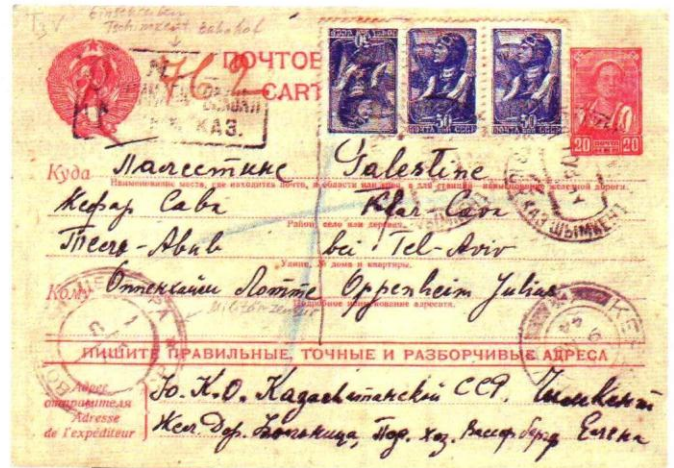 Einschreiben
Tschimkent Bahnhof
ПОЧТОВ
CART
№ 762
КАЗ.
30 ПОЧТА СССР
30 ПОЧТА СССР
30 ПОЧТА СССР
20 20
Куда Палестине Palestine
Наименование места, где находится почта, и области или края, а для станций наименование железной дороги.
Кефар Сава Kfar Cava
Район, село или деревня.
Телль-Авив bei Tel-Aviv
Улица, № дома и квартиры.
КАЗ ЧИМКЕНТ
Кому Оппенхайм Лотте Oppenheim Julius
Подробное наименование адресата.
Militärzensur
ПИШИТЕ ПРАВИЛЬНЫЕ, ТОЧНЫЕ И РАЗБОРЧИВЫЕ АДРЕСА
Адрес отправителя
Adresse de l'expéditeur
Ю. К. О. Казахстанский ССР. Чимкент
Жел. Дор. Больница, Под. Хоз. Елена